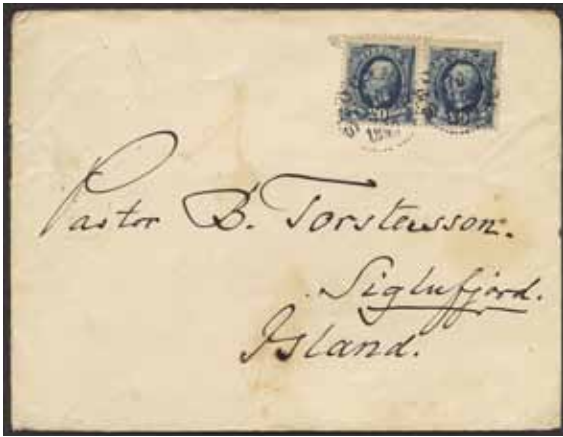 20
Pastor B. Torstensson.
Siglufjord.
Island.